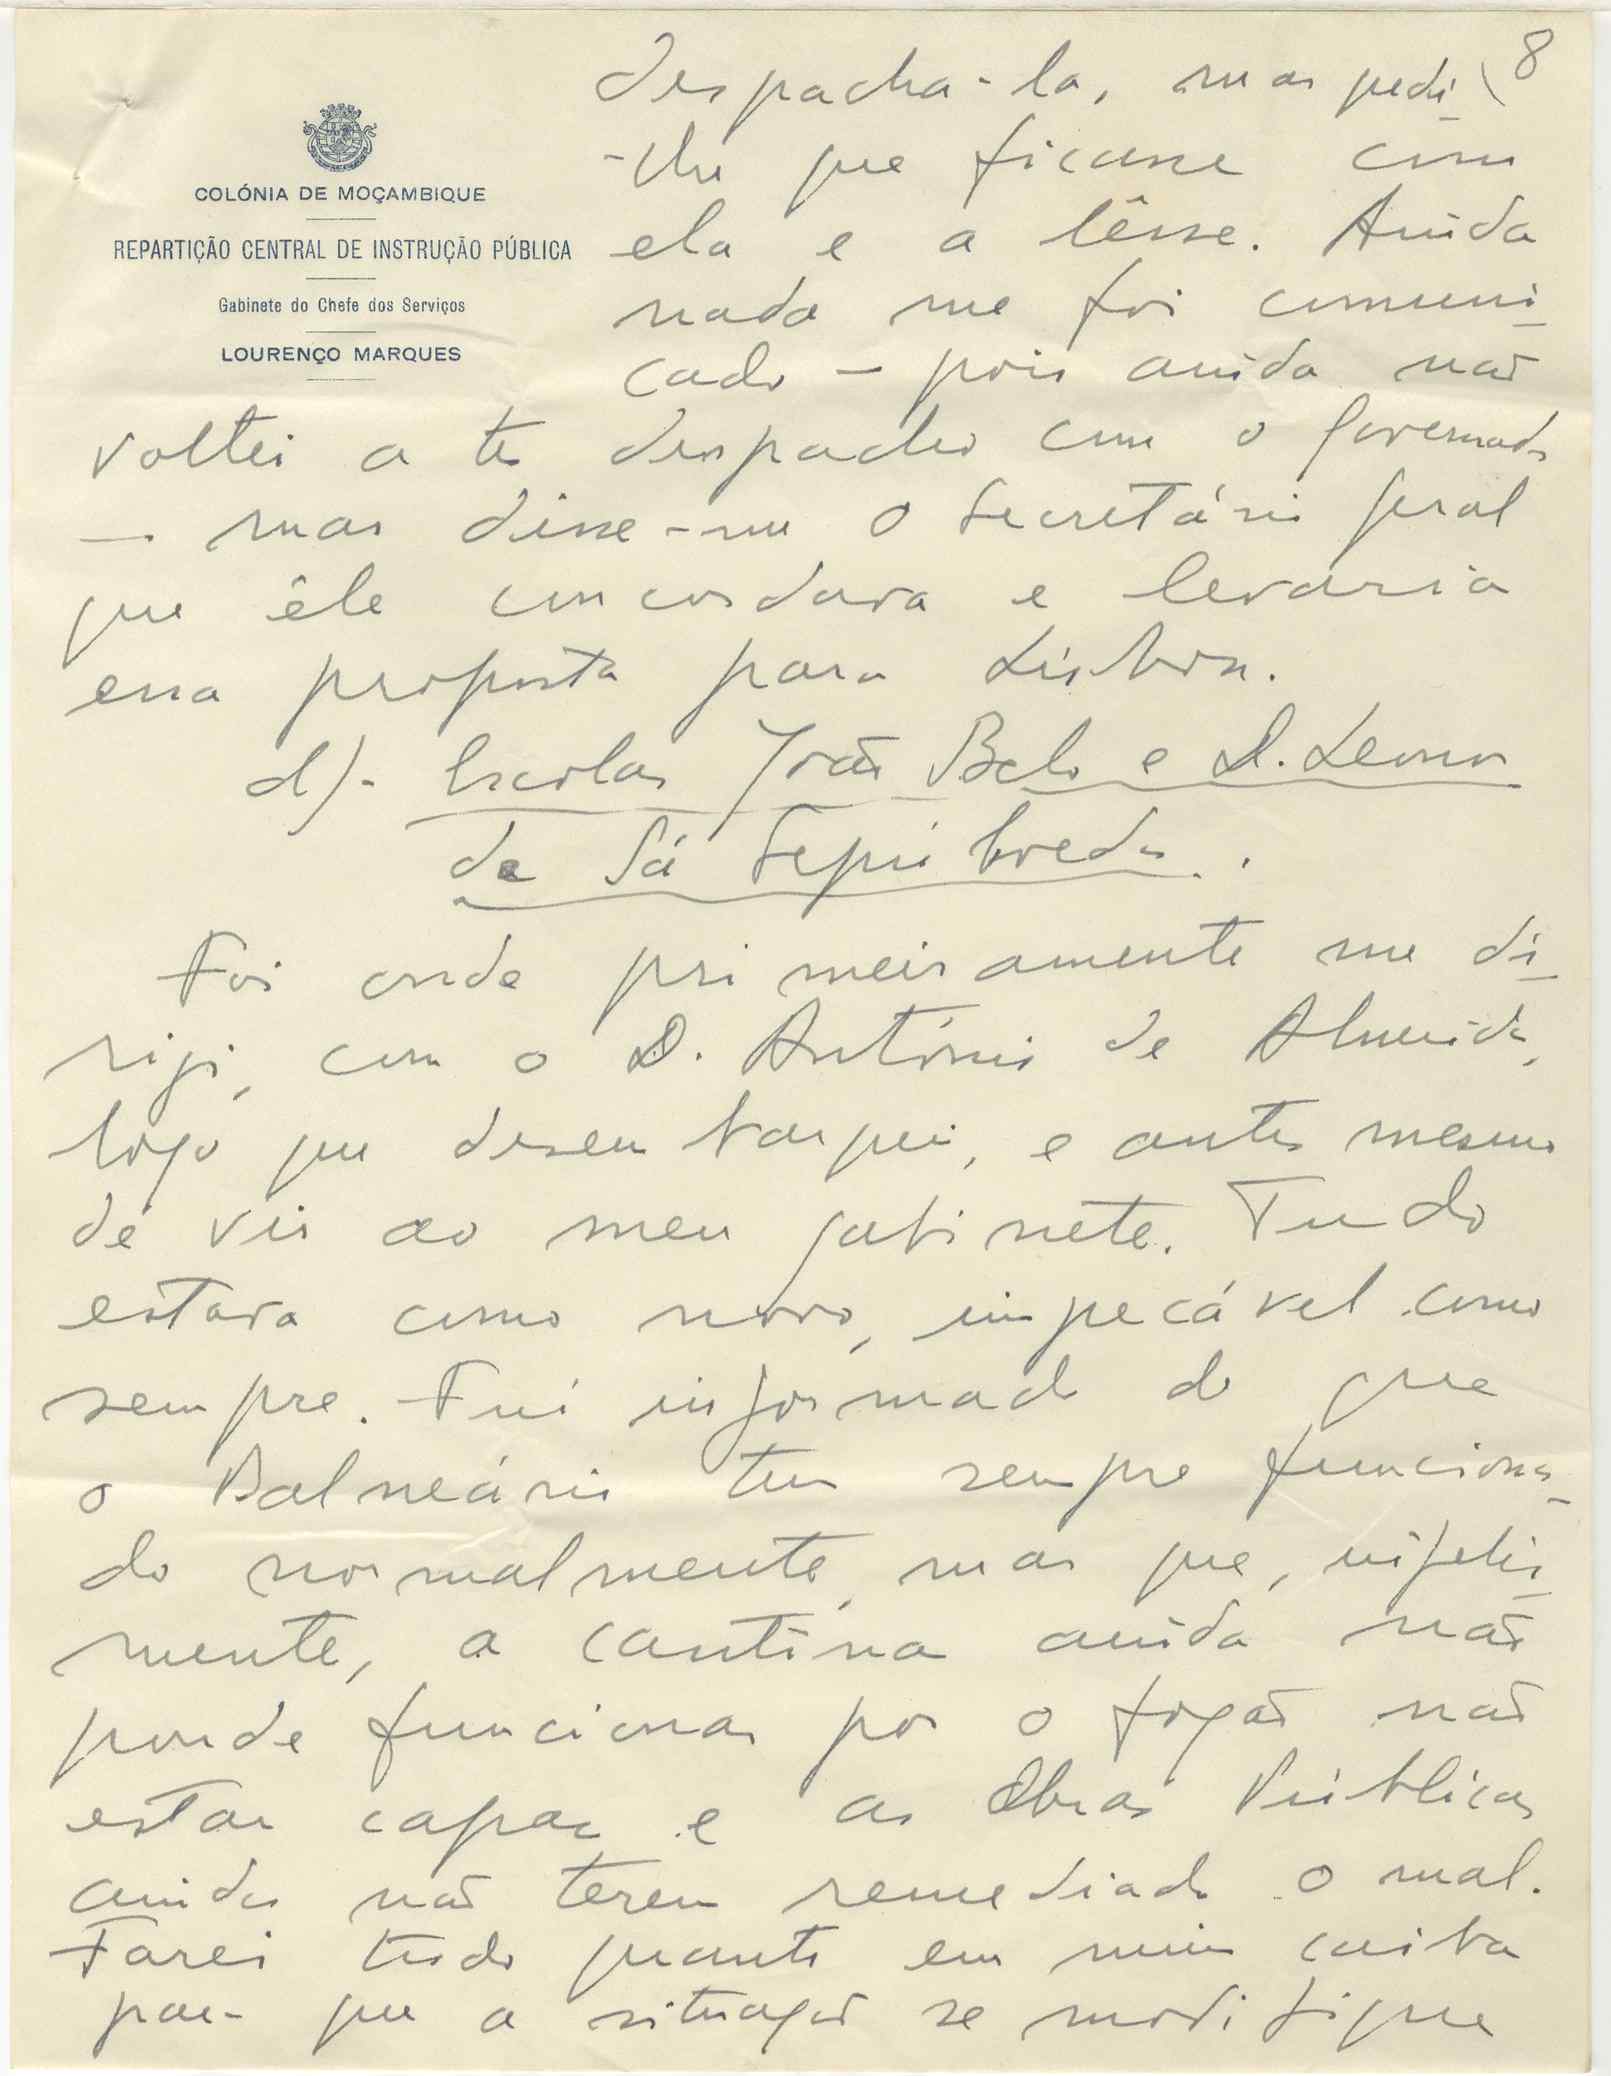 8
COLÓNIA DE MOÇAMBIQUE
REPARTIÇÃO CENTRAL DE INSTRUÇÃO PÚBLICA
Gabinete do Chefe dos Serviços
LOURENÇO MARQUES
despacha-la, mas pedi-
-lhe que ficasse com
ela e a lêsse. Ainda
nada me foi comuni-
cado — pois ainda não
voltei a ter despacho com o Governador
— mas disse-me o Secretário Geral
que êle concordara e levaria
essa proposta para Lisboa.
d)- Escolas João Belo e D. Leonor
de Sá Sepúlveda.
Foi onde primeiramente me di-
rigi, com o D. António de Almeida,
logo que desembarquei, e antes mesmo
de vir ao meu gabinete. Tudo
estava como novo, impecável como
sempre. Fui informado de que
o Balneário tem sempre funciona-
do normalmente, mas que, infeliz-
mente, a cantina ainda não
poude funcionar por o fogão não
estar capaz e as Obras Públicas
ainda não terem remediado o mal.
Farei tudo quanto em mim caiba
para que a situação se modifique